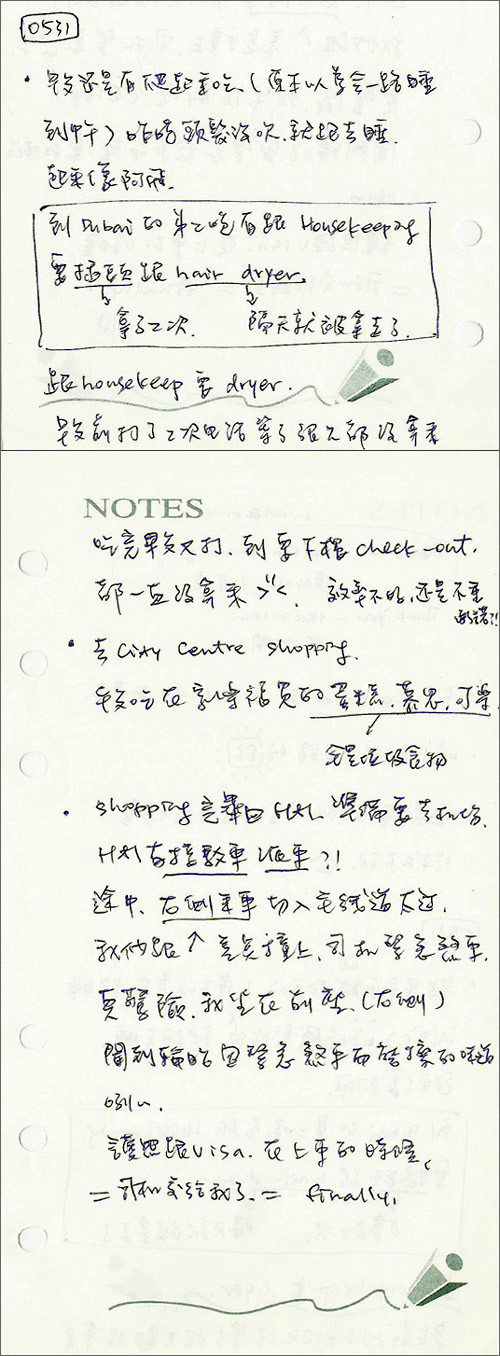 0531
• 早餐還是有爬起來吃,(原本以為會一路睡
到中午) 昨晚頭髮沒吹,就跑去睡.
起來像阿飛.
到 Dubai 的第二晚有跟 Housekeeping
要插頭跟 hair dryer.
拿了二次. 隔天就被拿走了.
跟 housekeep 要 dryer.
早餐前打了二次電話等了很久都沒拿來
NOTES
吃完早餐又打.到要下樓 check-out.
都一直沒拿來 >"<. 效率不好,還是不重
• 去 City Centre shopping.
午餐吃在家樂福買的 可樂
全是垃圾食物
• shopping 完畢回 Htl. 準備要去機場.
Htl 有接駁車
途中,右側來車切入
我們跟 ↑ 差點撞上,司機緊急煞車.
真驚險.我坐在前座.(右側)
聞到輪胎因緊急煞車而磨擦的味道
咧~
護照跟 visa.在上車的時候,
=司機交給我了.= finally.